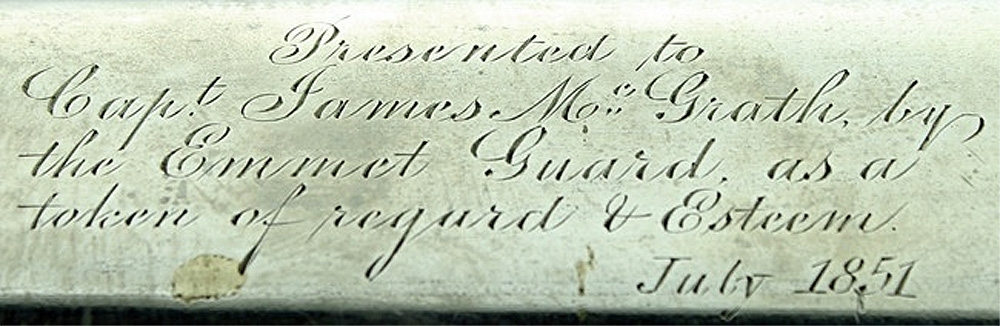 Presented to
Capt. James McGrath, by
the Emmet Guard, as a
token of regard & Esteem.
July 1851